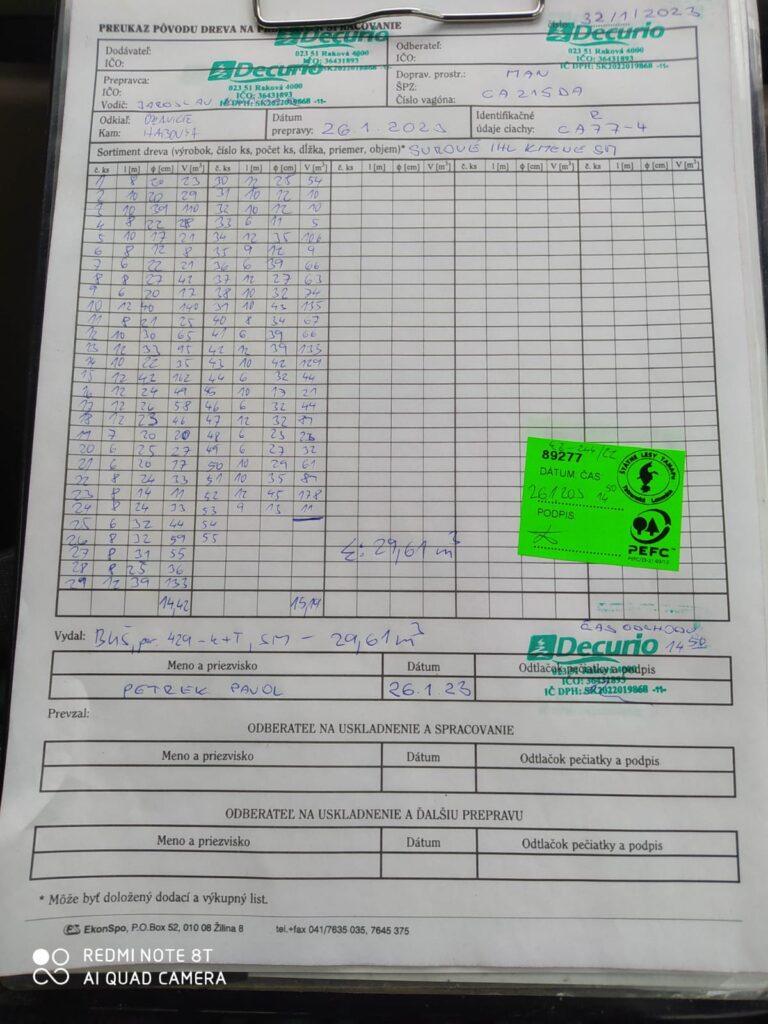 32/1/2023
PREUKAZ PÔVODU DREVA NA SPRACOVANIE
Dodávateľ:
IČO:
Decurio
023 51 Raková 4000
IČO: 36431893
Odberateľ:
IČO:
Decurio
023 51 Raková 4000
IČO: 36431893
IČ DPH: SK2022019868 -11-
Prepravca:
IČO:
Vodič: JAROSLAV
Decurio
023 51 Raková 4000
IČO: 36431893
IČ DPH: SK2022019868 -11-
Doprav. prostr.: MAN
ŠPZ: CA215DA
Číslo vagóna:
Odkiaľ:
Kam:
Dátum
prepravy: 26.1.2023
Identifikačné R
údaje ciachy: CA77-4
Sortiment dreva (výrobok, číslo ks, počet ks, dĺžka, priemer, objem)* SUROVÉ IHL KMENE SM
č. ks l [m] ϕ [cm] V [m³] č. ks l [m] ϕ [cm] V [m³] č. ks l [m] ϕ [cm] V [m³] č. ks l [m] ϕ [cm] V [m³] č. ks l [m] ϕ [cm] V [m³]
1 8 20 23 30 12 25 54
2 10 20 29 31 10 12 10
3 10 39 110 32 10 12 10
4 8 22 28 33 6 11 5
5 10 17 21 34 12 35 106
6 8 12 8 35 9 12 9
7 6 22 21 36 6 39 66
8 8 27 42 37 12 27 63
9 6 20 17 38 10 32 74
10 12 40 140 39 10 43 135
11 8 21 25 40 8 34 67
12 10 30 65 41 6 39 66
13 12 33 95 42 12 39 133
14 10 22 35 43 10 42 129
15 12 42 162 44 6 32 44
16 12 24 49 45 10 17 21
17 12 26 58 46 6 32 44
18 12 23 46 47 12 32
19 7 20 20 48 6 23 23
20 6 25 27 49 6 27 32
21 6 20 17 50 10 29 61
22 8 24 33 51 10 35
23 8 14 11 52 12 45 178
24 8 24 33 53 9 13 11
25 6 32 44 54
26 8 32 59 55
27 8 31 55
28 8 25 36
29 12 39 133
14,42 15,19
Σ: 29,61 m³
89277
DÁTUM, ČAS
14 50
PODPIS
ŠTÁTNE LESY TANAPU
PEFC™
Vydal: 429 - k+T, SM - 29,61 m³
ČAS ODCHODU
14 50
Decurio
IČO: 36431893
IČ DPH: SK2022019868 -11-
Meno a priezvisko Dátum Odtlačok pečiatky a podpis
PETREK PAVOL 26.1.23
Prevzal:
ODBERATEĽ NA USKLADNENIE A SPRACOVANIE
Meno a priezvisko Dátum Odtlačok pečiatky a podpis
ODBERATEĽ NA USKLADNENIE A ĎALŠIU PREPRAVU
Meno a priezvisko Dátum Odtlačok pečiatky a podpis
* Môže byť doložený dodací a výkupný list.
EkonSpo, P.O.Box 52, 010 08 Žilina 8 tel.+fax 041/7635 035, 7645 375
REDMI NOTE 8T
AI QUAD CAMERA